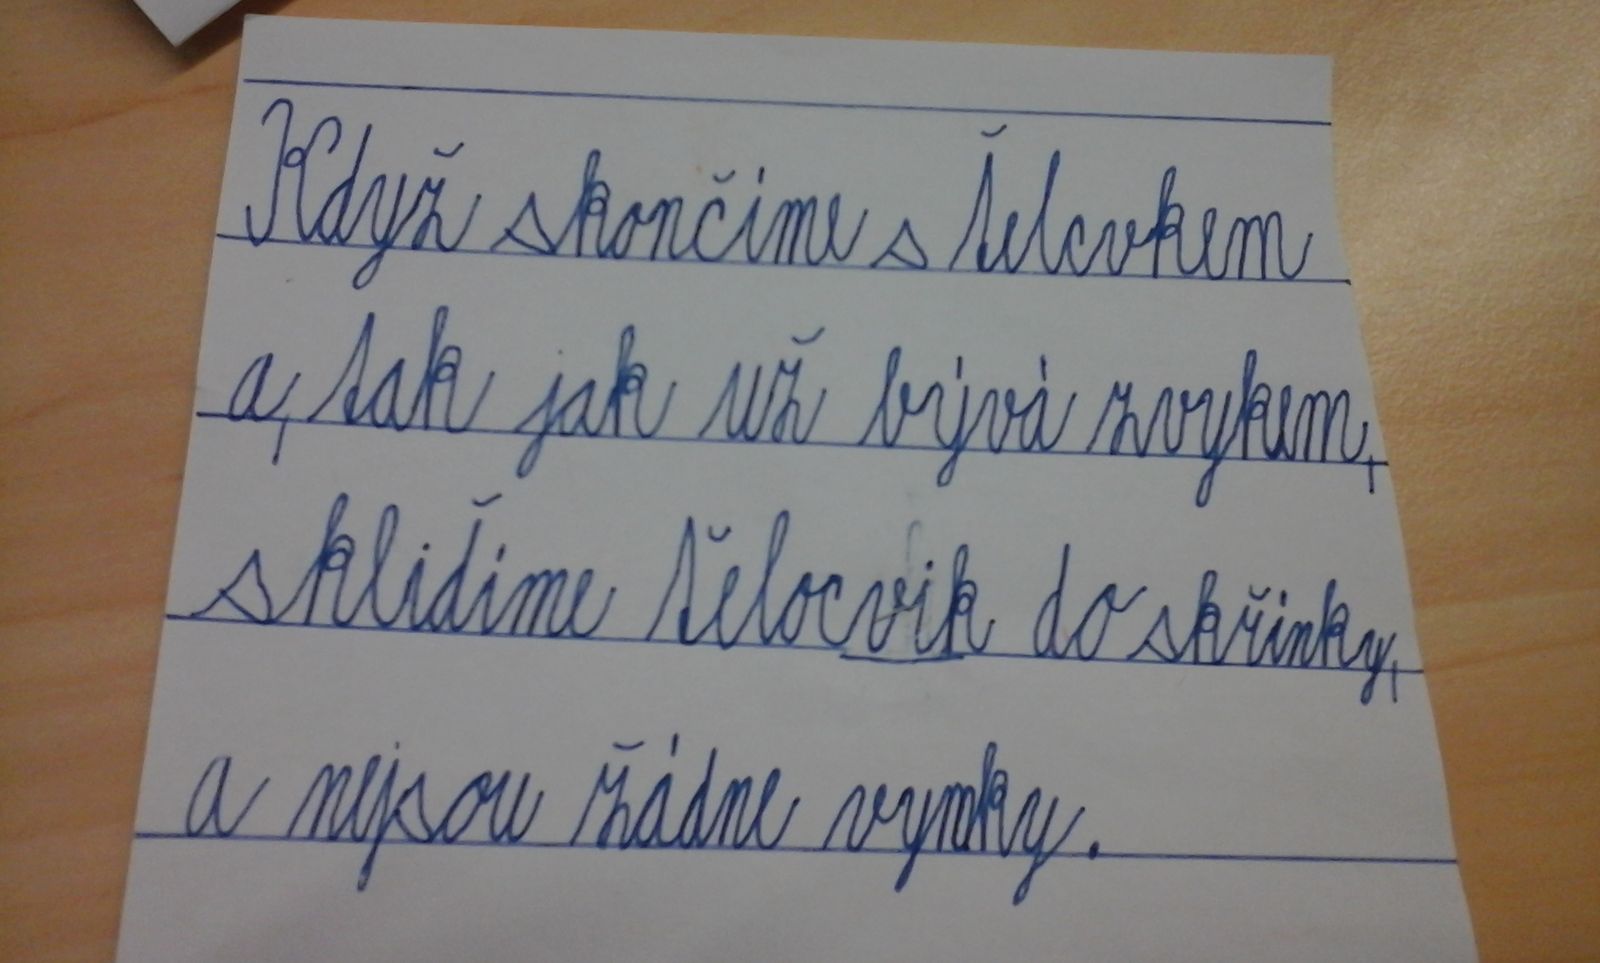 Když skončime s ťelcvkem
a, tak jak už bývá zvykem,
skliďime ťělocvik do skřinky,
a nejsou žádne vymky.